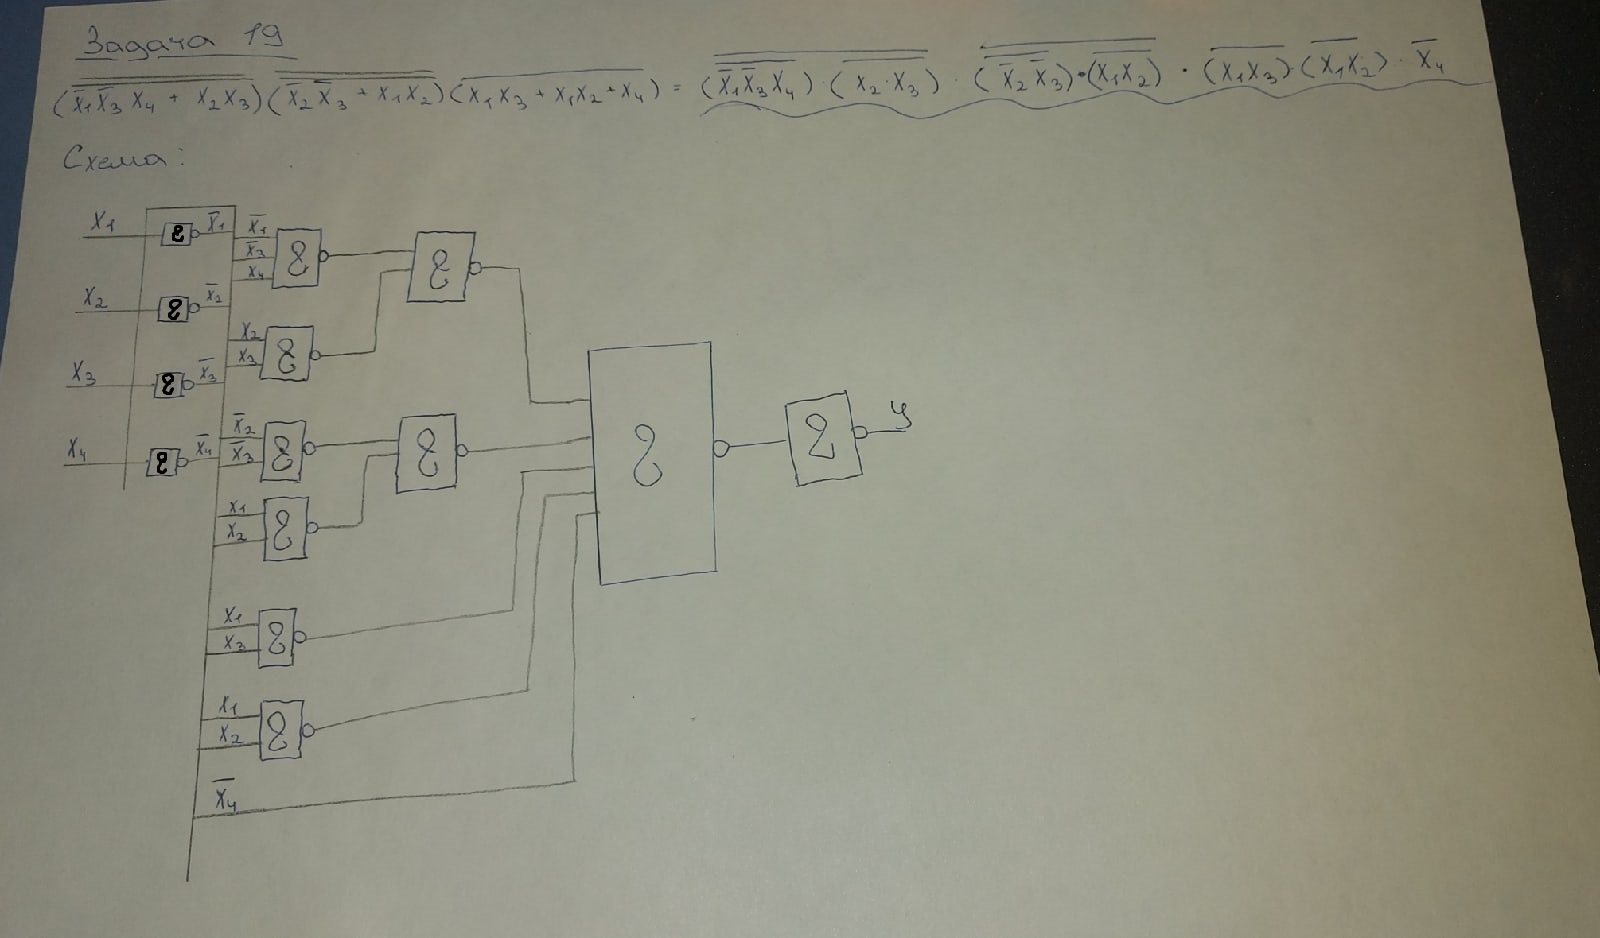 Задача 19
(x̅₁x̅₃x₄ + x₂x₃)(x̅₂x̅₃ + x₁x₂)(x₁x₃ + x₁x₂ + x₄) = (x̅₁x̅₃x₄) · (x₂·x₃) · (x̅₂x̅₃)·(x₁x₂) · (x₁x₃)·(x₁x₂) · x̅₄
Схема:
X₁ & X̅₁ X̅₁ & &
X̅₃
X₄
X₂ & X̅₂
X₂ &
X₃
X₃ & X̅₃
X₄ & X̅₄ X̅₂ & & & & y
X̅₃
X₁ &
X₂
X₁ &
X₃
X₁ &
X₂
X̅₄